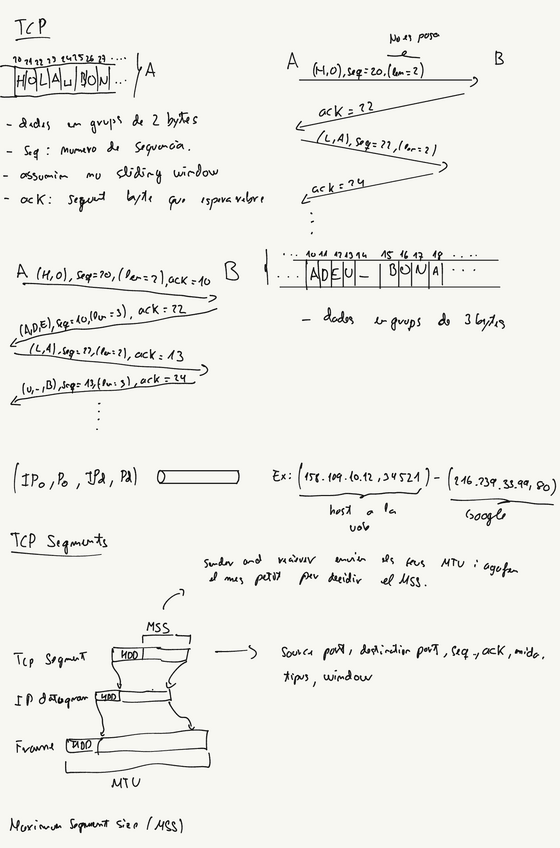 TCP
20 21 22 23 24 25 26 27 ...
H O L A ␣ B O N ... A
- dades en grups de 2 bytes
- Seq: numero de sequencia.
- assumim no sliding window
- ack: seguent byte que espera rebre
No es posa
A (H,O), seq=20, (len=2) B
ack = 22
(L,A), Seq=22, (len=2)
ack = 24
A (H,O), seq=20, (len=2), ack=10 B
(A,D,E), seq=10, (len=3), ack = 22
(L,A), seq=22, (len=2), ack = 13
(U,-,B), seq=13, (len=3), ack = 24
... 10 11 12 13 14 15 16 17 18 ...
... A D E U _ B O N A ...
- dades en grups de 3 bytes
(IPo, Po, IPd, Pd) Ex: (158.109.10.12, 34521) - (216.239.33.99, 80)
host a la Google
uab
TCP Segments
sender and reciever envien els seus MTU i agafen
el mes petit per decidir el MSS.
MSS
Tcp Segment HDD
Source port, destination port, seq, ack, mida,
tipus, window
IP datagram HDD
Frame HDD
MTU
Maximum Segment Size (MSS)